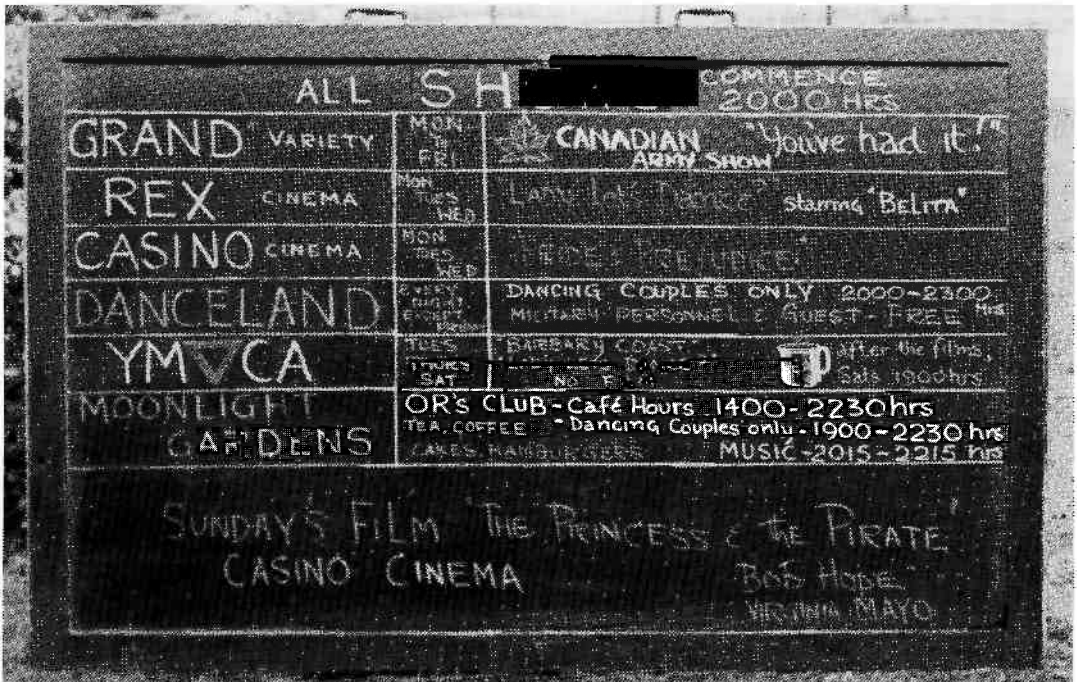 ALL SH COMMENCE
2000 HRS
GRAND VARIETY MON FRI CANADIAN ARMY SHOW "You've had it!"
REX CINEMA MON TUES WED "Lady Let's Dance" starring "BELITA"
CASINO CINEMA MON TUES WED "PRIDE & PREJUDICE"
DANCELAND EVERY NIGHT EXCEPT DANCING COUPLES ONLY 2000-2300 HRS
MILITARY PERSONNEL & GUEST-FREE
YMCA TUES BARBARY COAST after the films,
THURS Sats 1900hrs
SAT NO
MOONLIGHT GARDENS OR's CLUB-Café Hours 1400-2230hrs
TEA, COFFEE "Dancing Couples only-1900-2230 hrs
CAKES, HAMBURGERS MUSIC-2015-2215 hrs
SUNDAY'S FILM "THE PRINCESS & the PIRATE"
CASINO CINEMA BOB HOPE
VIRGINIA MAYO